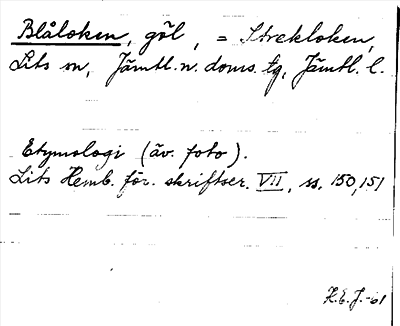 Blåloken, göl, = Strekloken,
Lits sn, Jämtl. n. doms. tg, Jämtl. l.
Etymologi (äv. foto).
Lits Hemb. för. skriftser. VII, ss. 150, 151
K.E.J.-61